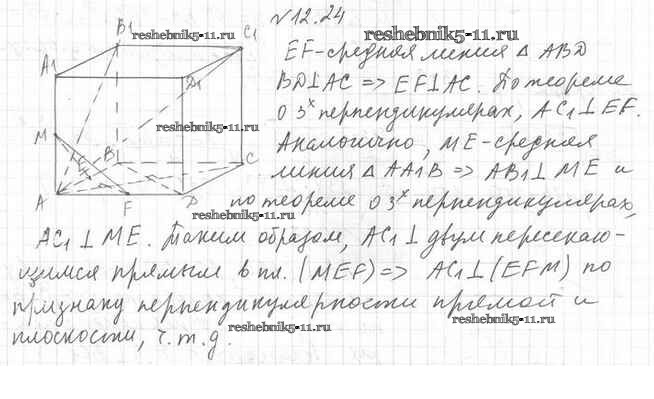 № 12.24
EF-средняя линия △ ABD
BD⊥AC => EF⊥AC. По теореме
о 3ˣ перпендикулярах, AC₁⊥EF.
Аналогично, ME-средняя
линия △ AA₁B => AB₁⊥ME и
по теореме о 3ˣ перпендикулярах,
AC₁⊥ME. Таким образом, AC₁⊥двум пересекаю-
щимся прямым в пл. (MEF) => AC₁⊥(EFM) по
признаку перпендикулярности прямой и
плоскости, ч.т.д.
B1
C1
A1
D1
M
B
C
A
F
D
reshebnik5-11.ru
reshebnik5-11.ru
reshebnik5-11.ru
reshebnik5-11.ru
reshebnik5-11.ru
reshebnik5-11.ru